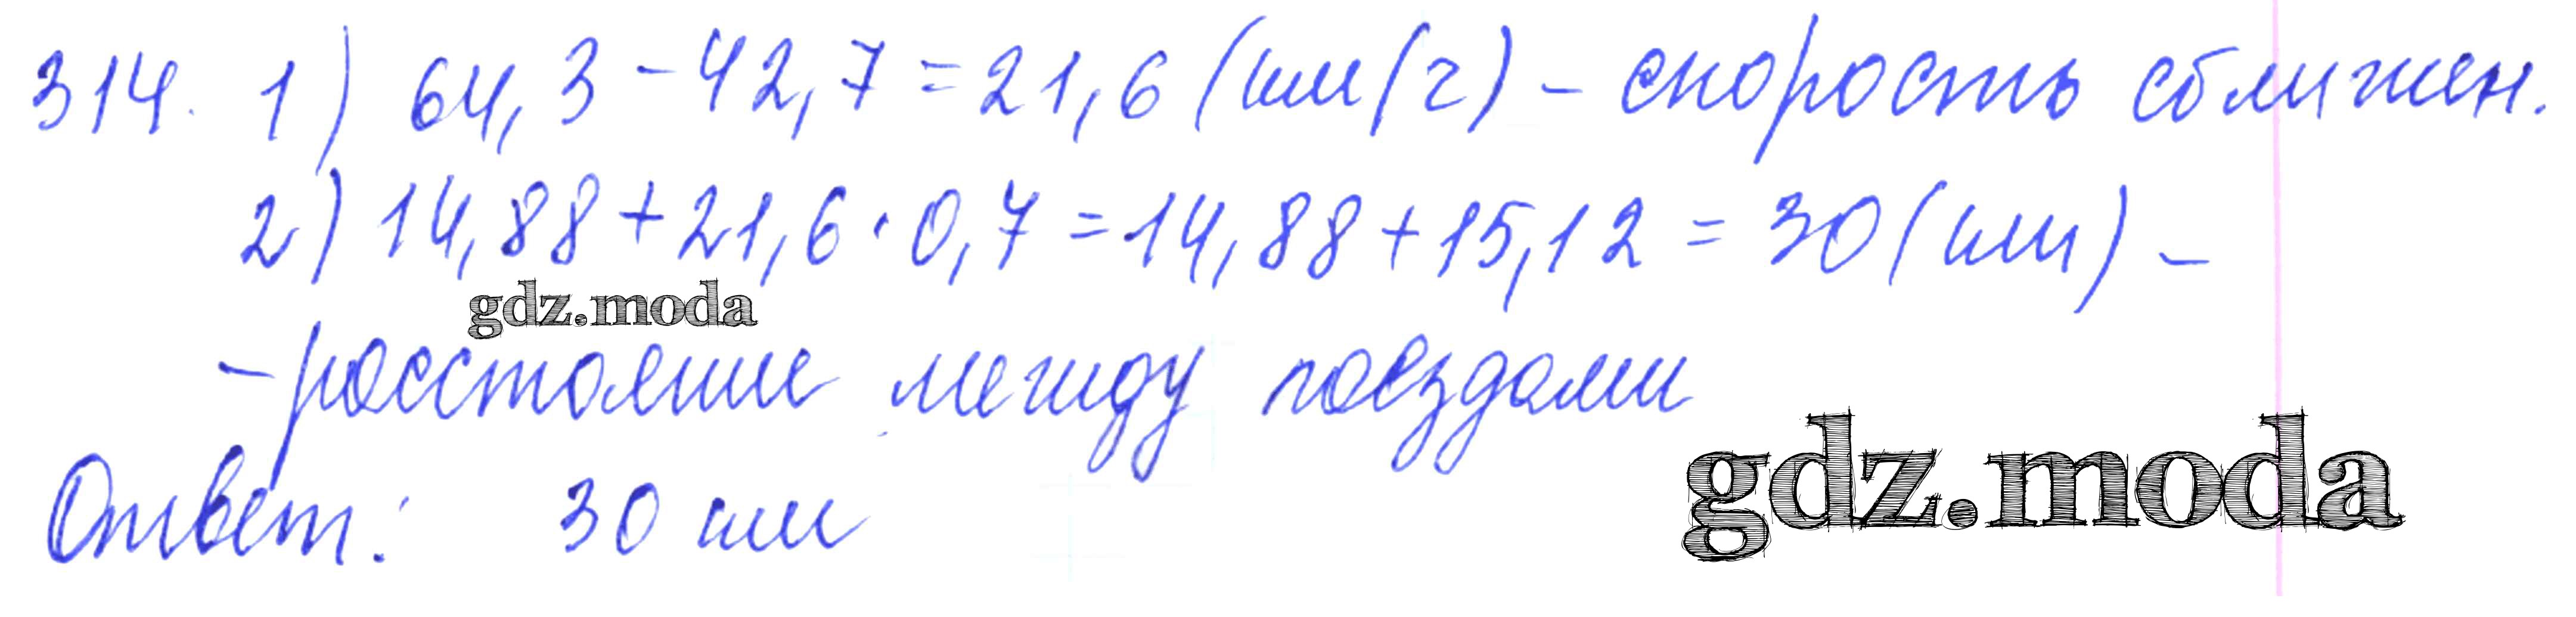 314. 1) 64,3 - 42,7 = 21,6 (км/ч) - скорость сближен.
2) 14,88 + 21,6 · 0,7 = 14,88 + 15,12 = 30 (км) -
gdz.moda
- расстояние между поездами
gdz.moda
Ответ: 30 км